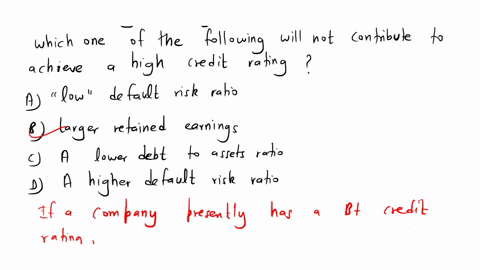 which one of the following will not contribute to
achieve a high credit rating ?
A) "low" default risk ratio
B) larger retained earnings
C) A lower debt to assets ratio
D) A higher default risk ratio
If a company presently has a B+ credit
rating,